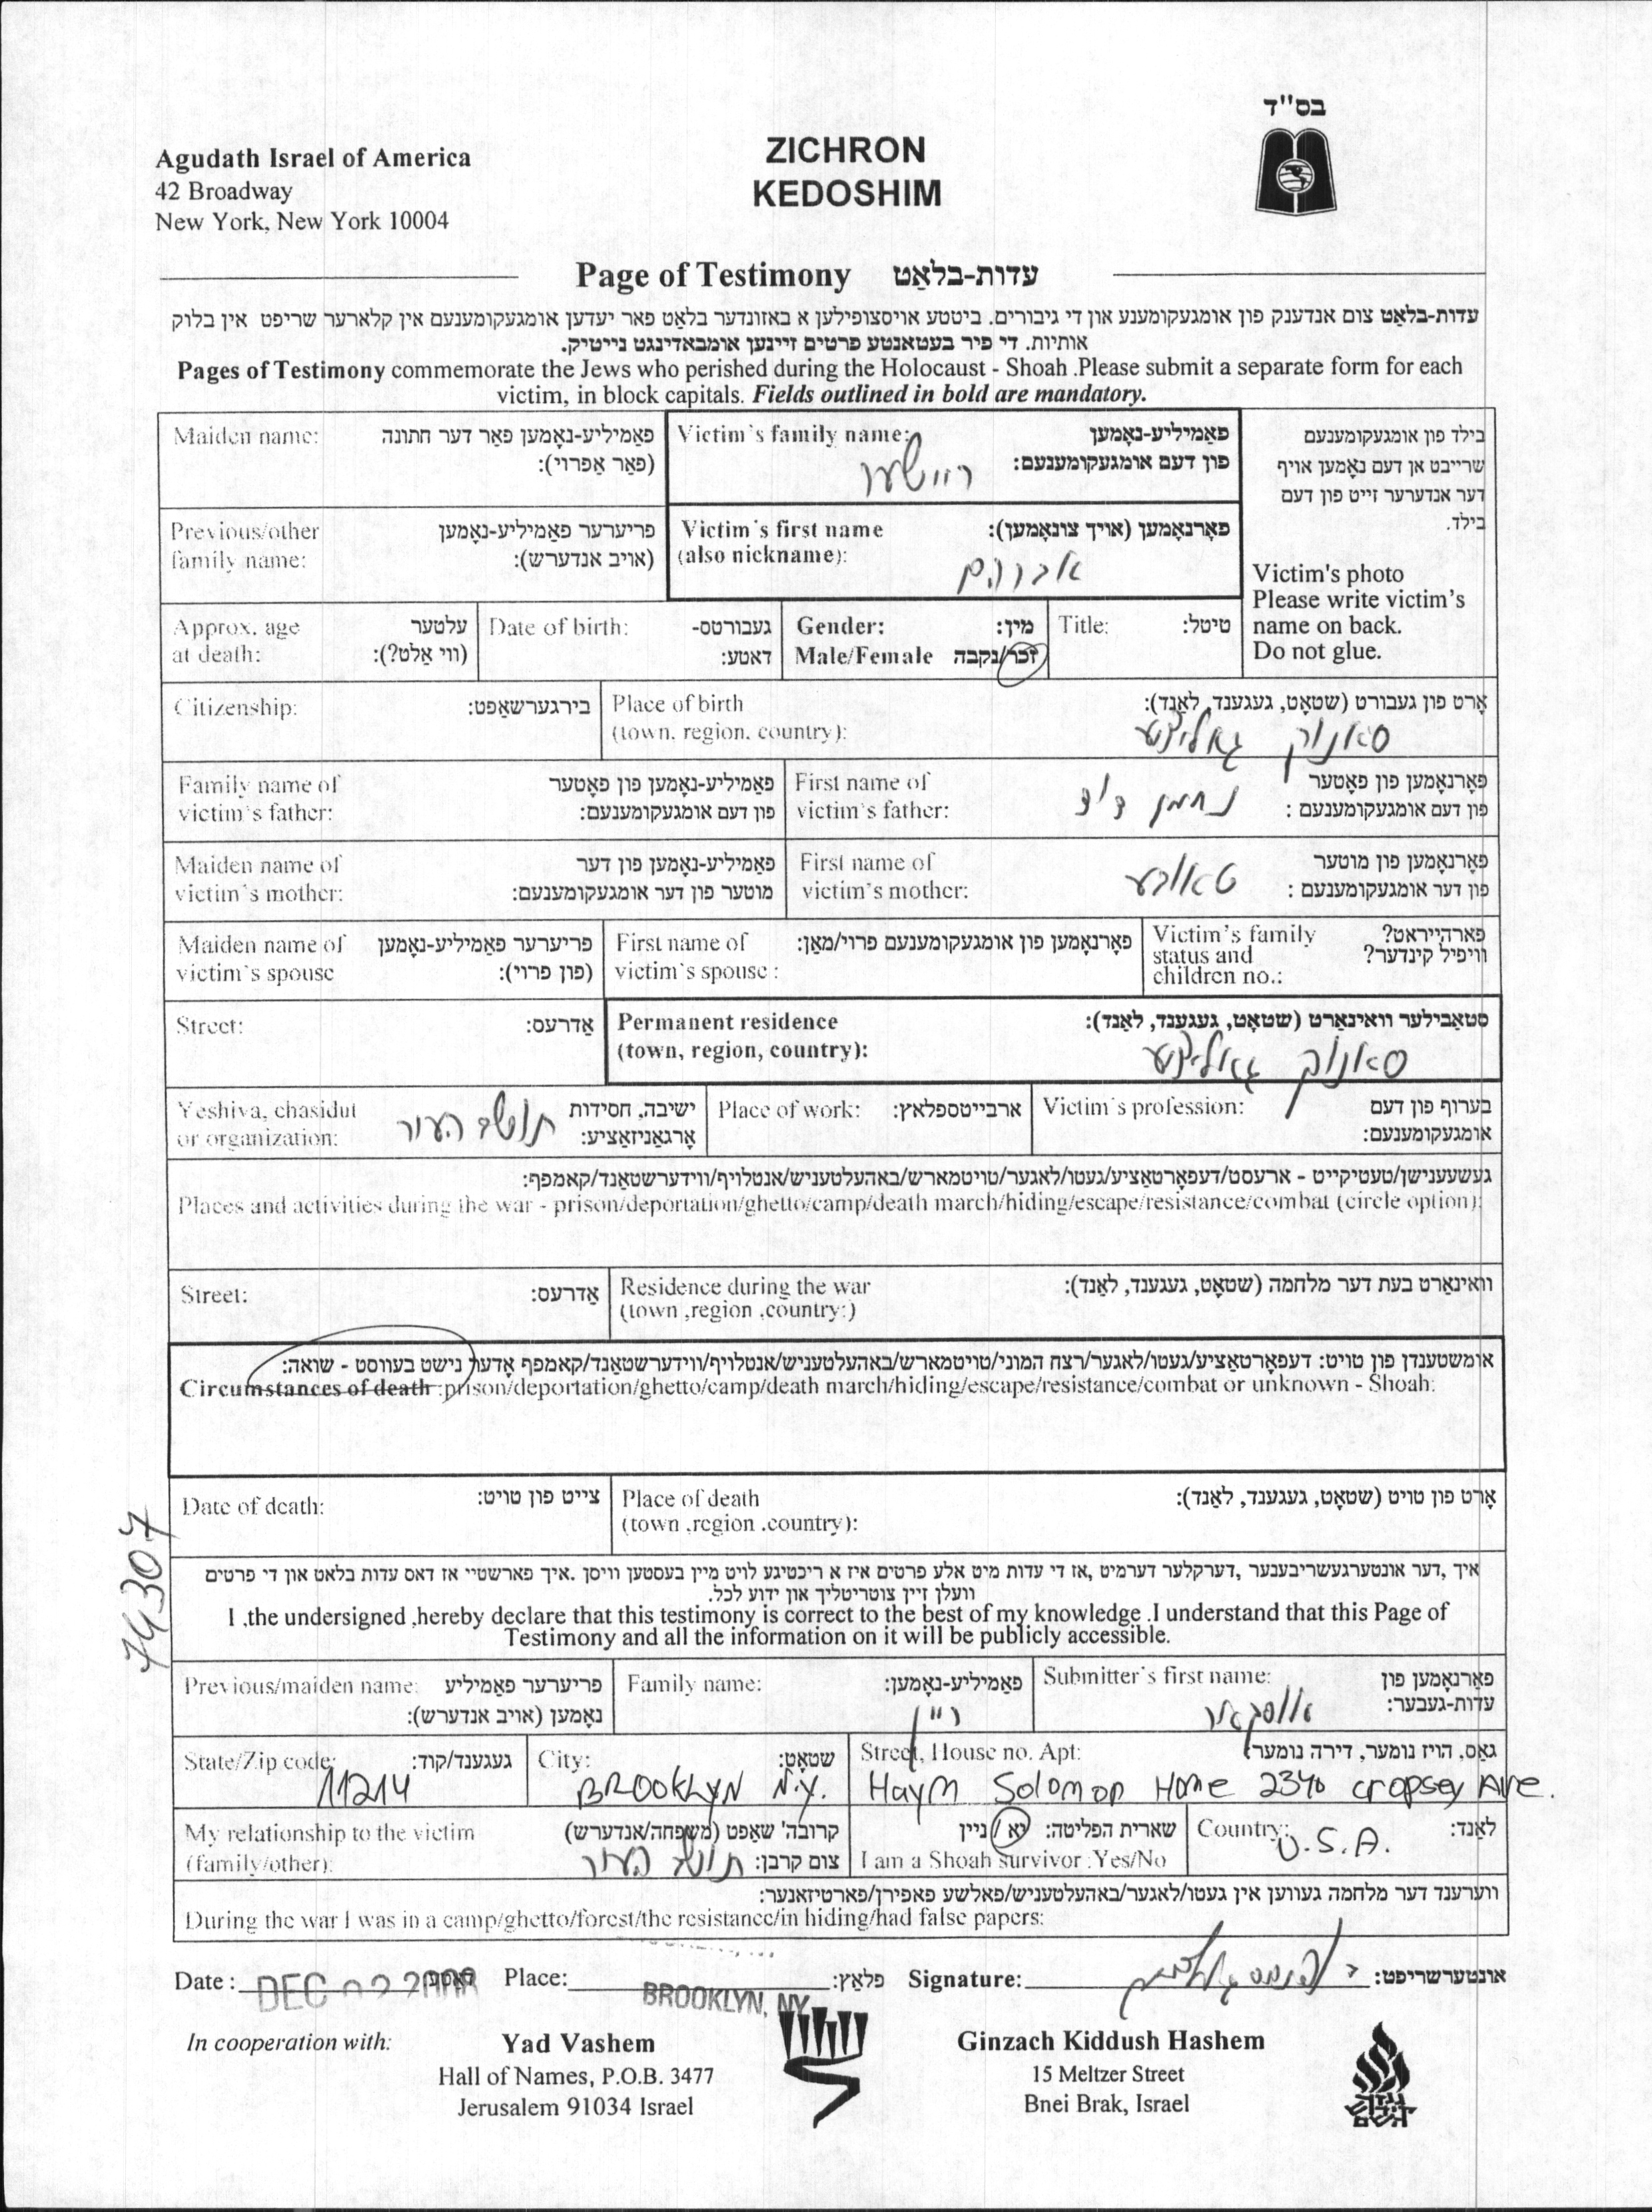 בס"ד
Agudath Israel of America
42 Broadway
New York, New York 10004
ZICHRON
KEDOSHIM
Page of Testimony עדות-בלאַט
עדות-בלאַט צום אנדענק פון אומגעקומענע און די גיבורים. ביטטע אויסצופילען א באזונדער בלאַט פאר יעדען אומגעקומענעם אין קלארער שריפט אין בלוק
אותיות. די פיר בעטאנטע פרטים זיינען אומבאדינגט נייטיק.
Pages of Testimony commemorate the Jews who perished during the Holocaust - Shoah .Please submit a separate form for each
victim, in block capitals. Fields outlined in bold are mandatory.
Maiden name: פאַמיליע-נאָמען פאַר דער חתונה
(פאַר אַפרוי):
Victim's family name: פאַמיליע-נאָמען
פון דעם אומגעקומענעם:
ביל‌ד פון אומגעקומענעם
שרייבט אן דעם נאָמען אויף
דער אנדערער זייט פון דעם
בילד.
Victim's photo
Please write victim's
name on back.
Do not glue.
Previous/other פריערער פאַמיליע-נאָמען
family name: (אויב אנדערש):
Victim's first name פאָרנאָמען (אויך צונאָמען):
(also nickname):
אברהם
Approx. age עלטער
at death: (ווי אַלט?):
Date of birth: געבורטס-
דאטע:
Gender: מין:
Male/Female זכר/נקבה
Title: טיטל:
Citizenship: בירגערשאַפט:
Place of birth אָרט פון געבורט (שטאָט, געגענד, לאַנד):
(town, region, country):
סאנוק גאליציע
Family name of פאַמיליע-נאָמען פון פאָטער
victim's father: פון דעם אומגעקומענעם:
First name of פאָרנאָמען פון פאטער
victim's father: פון דעם אומגעקומענעם :
נחמן דוד
Maiden name of פאַמיליע-נאָמען פון דער
victim's mother: מוטער פון דער אומגעקומענעם:
First name of פאָרנאָמען פון מוטער
victim's mother: פון דער אומגעקומענעם :
טאובע
Maiden name of פריערער פאַמיליע-נאָמען
victim's spouse (פון פרוי):
First name of פאָרנאָמען פון אומגעקומענעם פרוי/מאַן:
victim's spouse :
Victim's family פארהייראט?
status and וויפיל קינדער?
children no.:
Street: אַדרעס:
Permanent residence סטאַבילער וואינאַרט (שטאָט, געגענד, לאַנד):
(town, region, country):
סאנוק גאליציע
Yeshiva, chasidut ישיבה, חסידות
or organization: אָרגאַניזאַציע:
תושב העיר
Place of work: ארבייטספלאץ:
Victim's profession: בערוף פון דעם
אומגעקומענעם:
געשעענישן/טעטיקייט - ארעסט/דעפאָרטאַציע/געטו/לאגער/טויטמארש/באהעלטעניש/אנטלויף/ווידערשטאַנד/קאמפף:
Places and activities during the war - prison/deportation/ghetto/camp/death march/hiding/escape/resistance/combat (circle option):
Street: אַדרעס:
Residence during the war וואינאַרט בעת דער מלחמה (שטאָט, געגענד, לאַנד):
(town ,region .country:)
אומשטענדן פון טויט: דעפאָרטאַציע/געטו/לאגער/רצח המוני/טויטמארש/באהעלטעניש/אנטלויף/ווידערשטאַנד/קאמפף אָדער נישט בעוווסט - שואה:
Circumstances of death :prison/deportation/ghetto/camp/death march/hiding/escape/resistance/combat or unknown - Shoah:
Date of death: צייט פון טויט:
Place of death אָרט פון טויט (שטאָט, געגענד, לאַנד):
(town ,region .country):
74307
איך, דער אונטערגעשריבענער ,דערקלער דערמיט ,אז די עדות מיט אלע פרטים איז א ריכטיגע לויט מיין בעסטען וויסן .איך פארשטיי אז דאס עדות בלאט און די פרטים
וועלן זיין צוטריטליך און ידוע לכל.
I ,the undersigned ,hereby declare that this testimony is correct to the best of my knowledge .I understand that this Page of
Testimony and all the information on it will be publicly accessible.
Previous/maiden name: פריערער פאַמיליע
נאָמען (אויב אנדערש):
Family name: פאַמיליע-נאָמען:
Submitter's first name: פאַרנאָמען פון
עדות-געבער:
State/Zip code: געגענד/קוד:
11214
City: שטאָט:
BROOKLYN N.Y.
Street, House no. Apt: גאַס, הויז נומער, דירה נומער:
Haym Solomon Home 2340 cropsey Ave.
My relationship to the victim קרובה' שאַפט (משפחה/אנדערש)
(family/other): צום קרבן:
תושב העיר
שארית הפליטה: יא / ניין
I am a Shoah survivor :Yes/No
Country: לאַנד:
U.S.A.
ווערענד דער מלחמה געווען אין געטו/לאגער/באהעלטעניש/פאלשע פאפירן/פארטיזאנער:
During the war I was in a camp/ghetto/forest/the resistance/in hiding/had false papers:
Date : DEC 02 2008 דאטע: Place: BROOKLYN, NY פלאַץ: Signature: אונטערשריפט:
In cooperation with:
Yad Vashem
Hall of Names, P.O.B. 3477
Jerusalem 91034 Israel
Ginzach Kiddush Hashem
15 Meltzer Street
Bnei Brak, Israel
גנזך
קידוש
השם